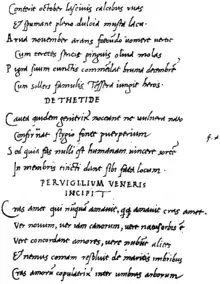 Conterit october lasciuis calcibus uuas
Et spumant pleno dulcia musta lacu.
Arua nouember arans fecundo uomere uertit
Cum teretes sentit pinguis oliua molas
Pigra suum cunctis commendat bruma decembrē
Cum sollers famulis tessera iungit heros.
DE THETIDE
Cauta quidem genitrix noceant ne uulnera nato
Confirmat stygio fonte puerperium
Sed quia fas nulli est humanam uincere sortē
In membris tincti dant sibi fata locum.
PERVIGILIVM VENERIS
INCIPIT
Cras amet qui nunquā amauit, qq amauit cras amet.
Ver nouum, uer iam canorum, uere natus orbis ē
Vere concordant amores, uere nubunt alites
Et nemus comam resoluit de maritis imbribus
Cras amorū copulatrix inter umbras arborum